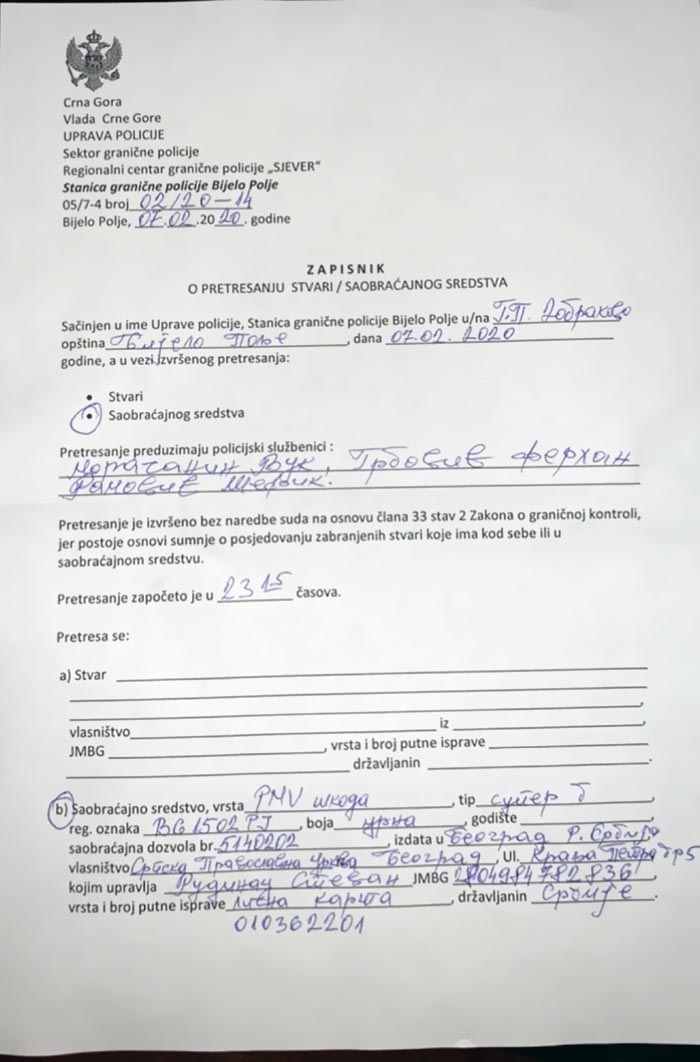 Crna Gora
Vlada Crne Gore
UPRAVA POLICIJE
Sektor granične policije
Regionalni centar granične policije „SJEVER"
Stanica granične policije Bijelo Polje
05/7-4 broj 02/20-14
Bijelo Polje, 07.02.2020. godine
ZAPISNIK
O PRETRESANJU STVARI / SAOBRAĆAJNOG SREDSTVA
Sačinjen u ime Uprave policije, Stanica granične policije Bijelo Polje u/na Г.П. Добраково
opština Бијело Поље, dana 07.02.2020
godine, a u vezi izvršenog pretresanja:
• Stvari
• Saobraćajnog sredstva
Pretresanje preduzimaju policijski službenici :
Морачанин Вук, Грбовић Ферхан
Шефик.
Pretresanje je izvršeno bez naredbe suda na osnovu člana 33 stav 2 Zakona o graničnoj kontroli,
jer postoje osnovi sumnje o posjedovanju zabranjenih stvari koje ima kod sebe ili u
saobraćajnom sredstvu.
Pretresanje započeto je u 2315 časova.
Pretresa se:
a) Stvar
vlasništvo iz
JMBG, vrsta i broj putne isprave
državljanin
b) Saobraćajno sredstvo, vrsta PMV шкода, tip супер б,
reg. oznaka BG 1502 PJ, boja црна, godište
saobraćajna dozvola br. 5140202, izdata u Београд Р. Србија
vlasništvo Српска Православна Црква Београд, Ul. Краља Петра бр5
kojim upravlja Стеван JMBG 2804984782836
vrsta i broj putne isprave Лична карта, državljanin Србије.
010362201